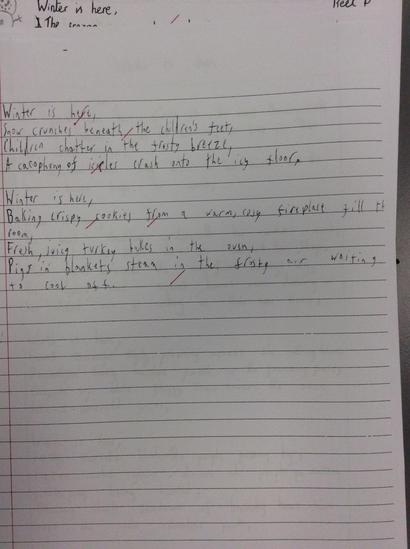 Winter is here,
1 The
Winter is here,
Snow crunches beneath the children's feet,
Children chatter in the frosty breeze,
A cacophony of icicles crash onto the icy floor,
Winter is here,
Baking crispy cookies from a warm, cosy fireplace fill th
room,
Fresh, juicy turkey bakes in the oven,
Pigs in blankets steam in the frosty air waiting
to cool off.